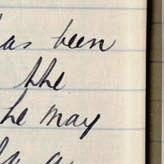 has been
the
he may